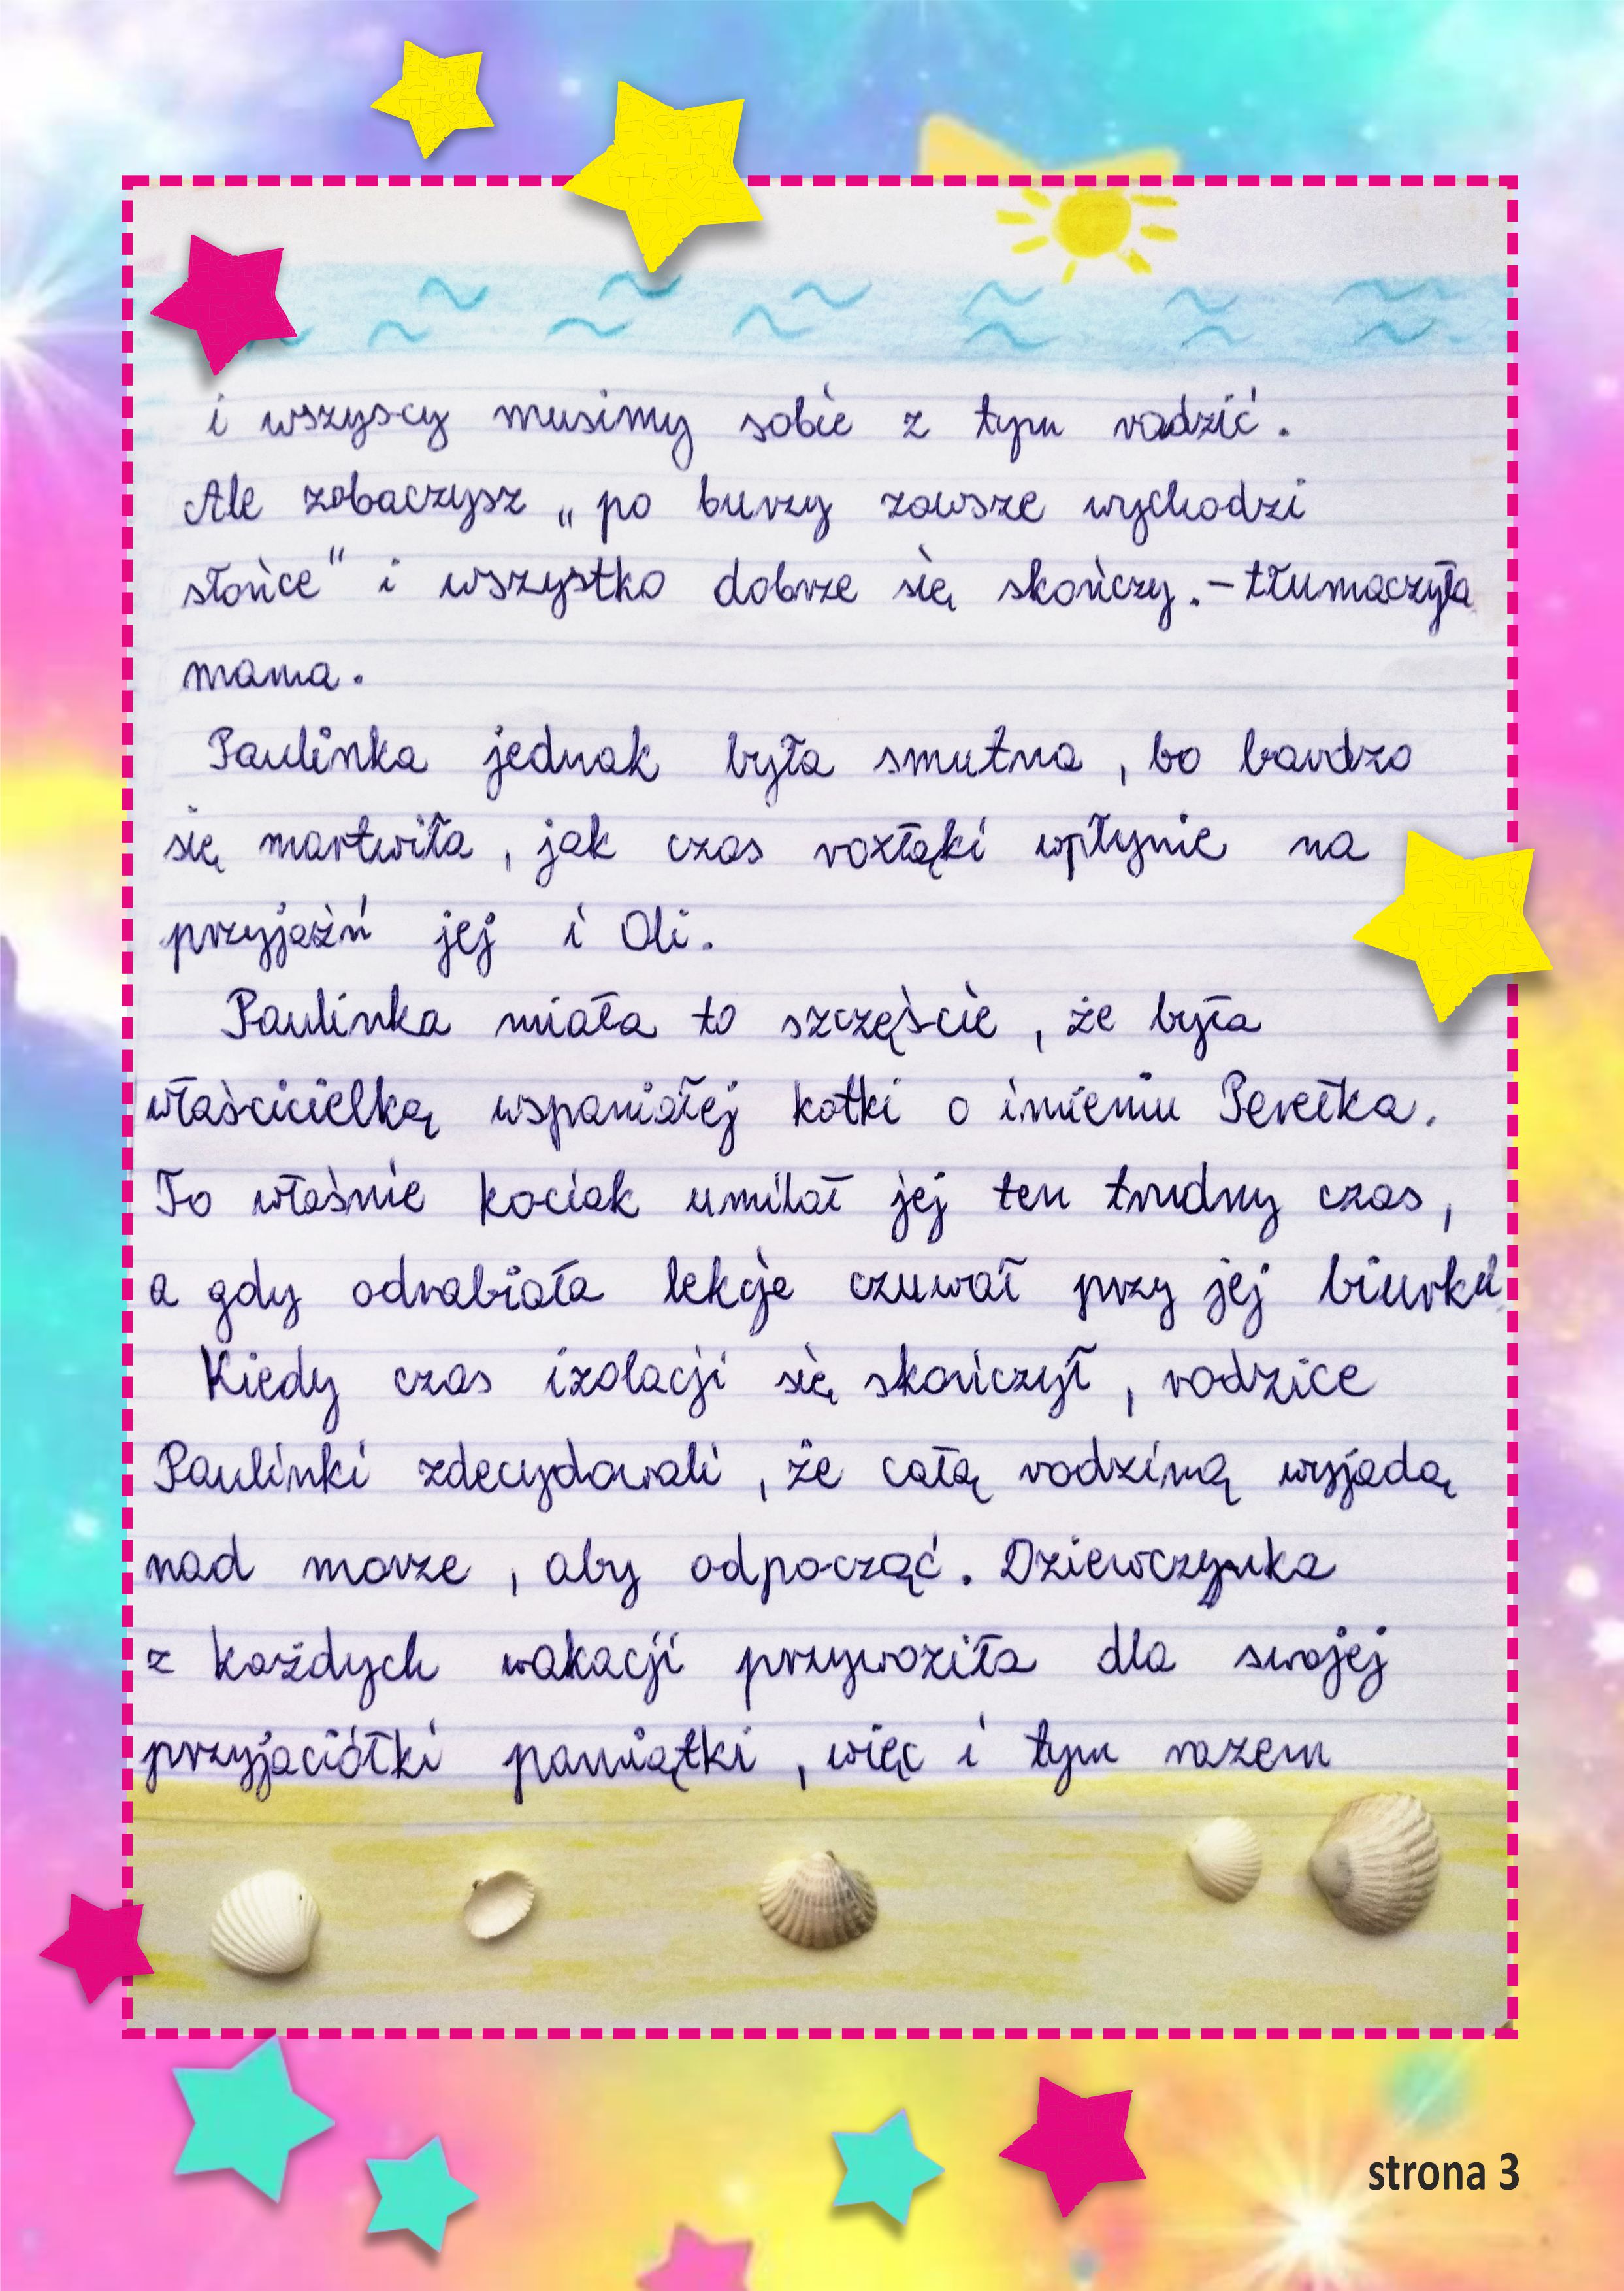 i wszyscy musimy sobie z tym radzić.
Ale zobaczysz „po burzy zawsze wychodzi
słońce" i wszystko dobrze się skończy. – tłumaczyła
mama.
Paulinka jednak była smutna, bo bardzo
się martwiła, jak czas rozłąki wpłynie na
przyjaźń jej i Oli.
Paulinka miała to szczęście, że była
właścicielką wspaniałej kotki o imieniu Perełka.
To właśnie kociak umilał jej ten trudny czas,
a gdy odrabiała lekcje czuwał przy jej biurku
Kiedy czas izolacji się skończył, rodzice
Paulinki zdecydowali, że całą rodziną wyjadą
nad morze, aby odpocząć. Dziewczynka
z każdych wakacji przywoziła dla swojej
przyjaciółki pamiątki, więc i tym razem
strona 3